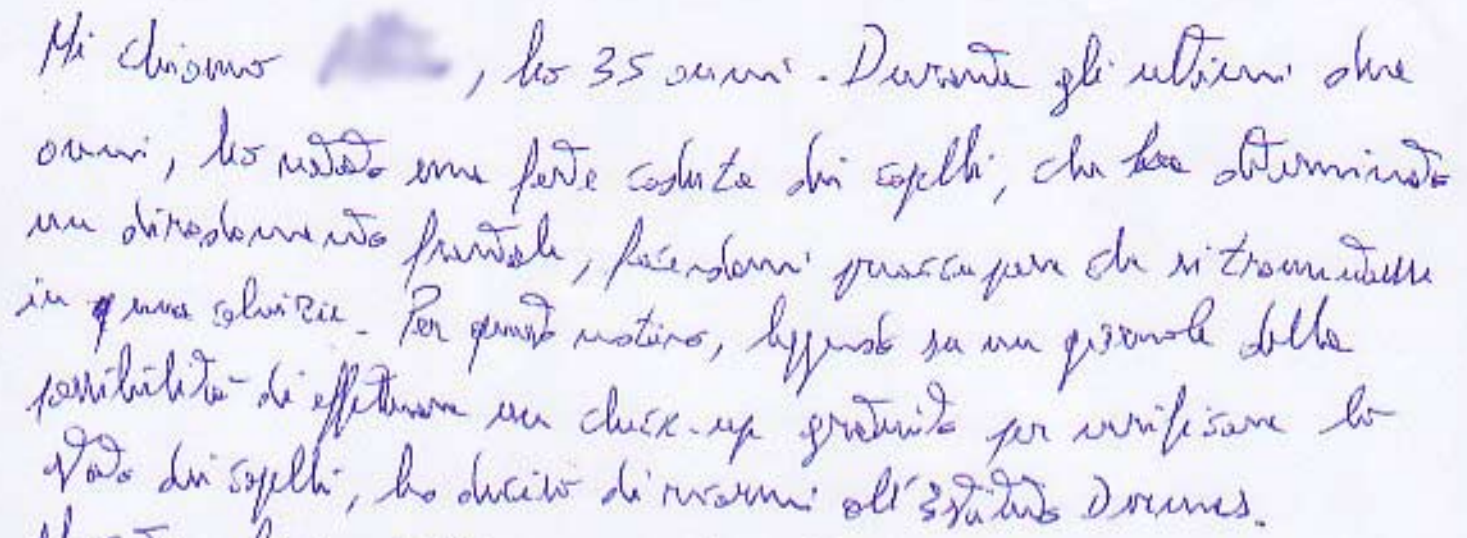 Mi chiamo , ho 35 anni. Durante gli ultimi due
anni, ho notato una forte caduta dei capelli, che ha determinato
un diradamento frontale, facendomi preoccupare che si tramutasse
in una calvizie. Per questo motivo, leggendo su un giornale della
possibilità di effettuare un check-up gratuito per verificare lo
stato dei capelli, ho deciso di recarmi all'Istituto